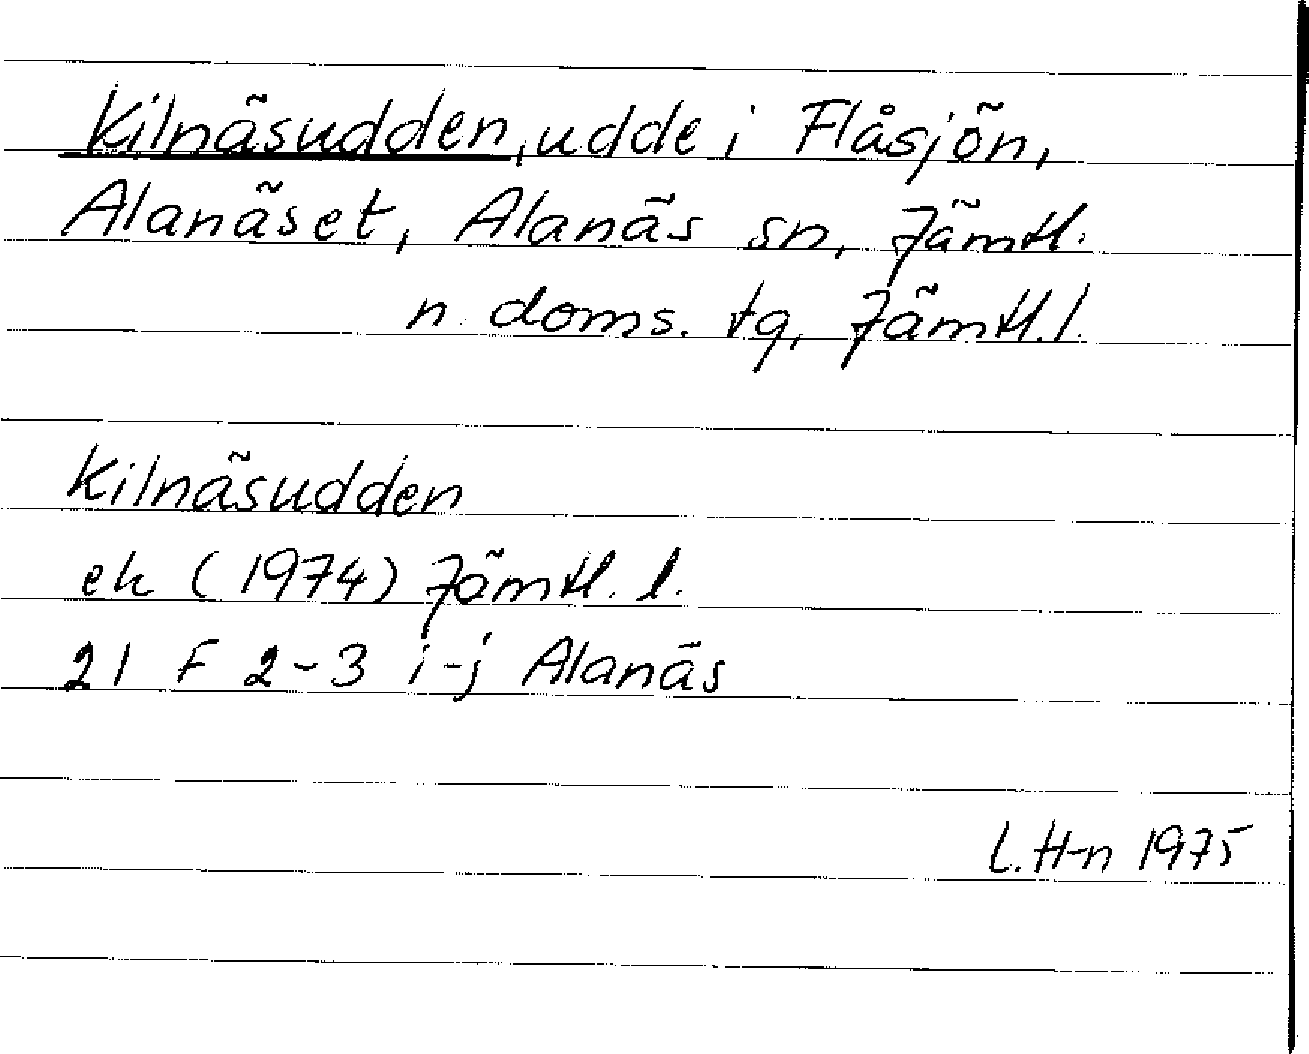 Kilnäsudden, udde i Flåsjön,
Alanäset, Alanäs sn, Jämtl.
n. doms. tg, Jämtl. l.
Kilnäsudden
ek (1974) Jämtl. l.
21 F 2-3 i-j Alanäs
L. H-n 1975